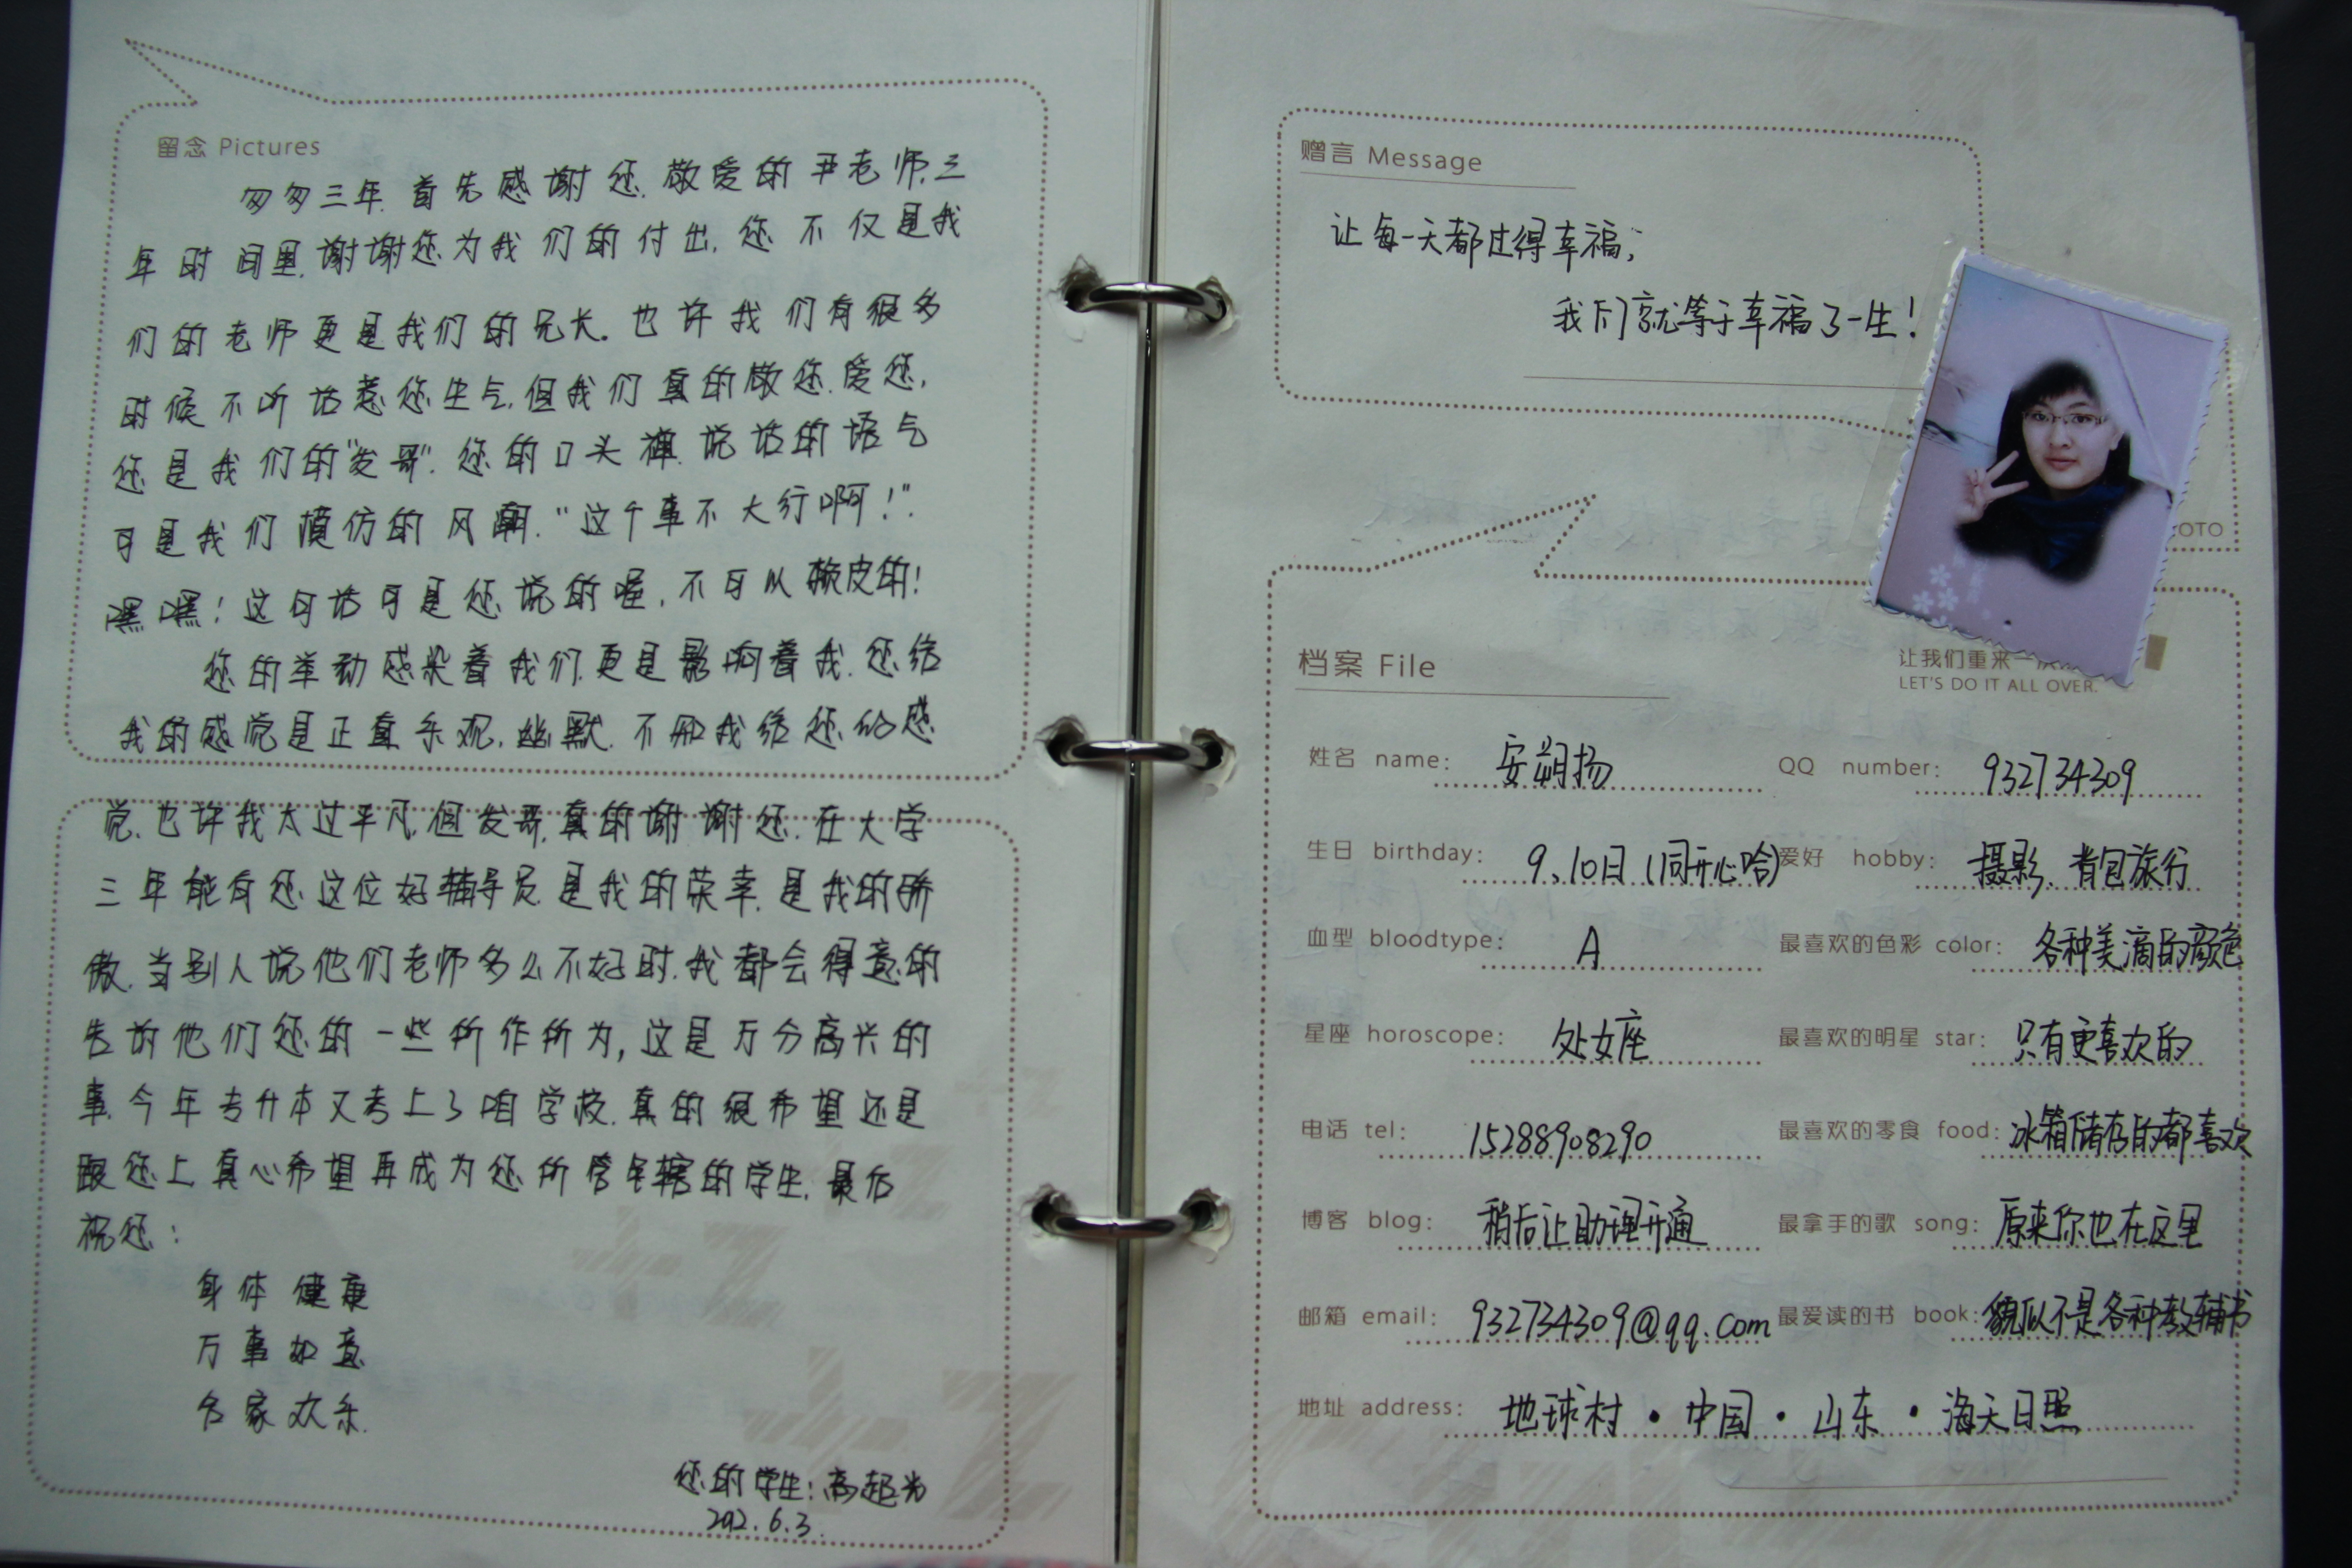 留念 Pictures
匆匆三年.首先感谢您.敬爱的尹老师.三
年时间里.谢谢您为我们的付出.您不仅是我
们的老师更是我们的兄长。也许我们有很多
时候不听话惹您生气.但我们真的敬您.爱您.
您是我们的"发哥".您的口头禅.说话的语气
可是我们模仿的风潮."这个事不大行啊!".
嘿嘿!这句话可是您说的喔.不可以赖皮的!
您的举动感染着我们.更是影响着我.您给
我的感觉是正直乐观.幽默.不知我给您的感
觉.也许我太过平凡.但发哥.真的谢谢您.在大学
三年能有您这位好辅导员.是我的荣幸.是我的骄
傲.当别人说他们老师多么不好时.我都会得意的
告诉他们您的一些所作所为,这是万分高兴的
事.今年专升本又考上了咱学校.真的很希望还是
跟您上.真心希望再成为您所管辖的学生.最后
祝您:
身体健康
万事如意
合家欢乐.
您的学生:高超光
2012.6.3.
赠言 Message
让每一天都过得幸福;
我们就等于幸福了一生!
OTO
档案 File
让我们重来一次
LET'S DO IT ALL OVER.
姓名 name: 安朔扬 QQ number: 932734309
生日 birthday: 9、10日(同开心哈) 爱好 hobby: 摄影、背包旅行
血型 bloodtype: A 最喜欢的色彩 color: 各种美滴的颜色
星座 horoscope: 处女座 最喜欢的明星 star: 只有更喜欢的
电话 tel: 15288908290 最喜欢的零食 food: 冰箱储存的都喜欢
博客 blog: 稍后让助理开通 最拿手的歌 song: 原来你也在这里
邮箱 email: 932734309@qq.com 最爱读的书 book: 貌似不是各种教辅书
地址 address: 地球村·中国·山东·海天日照